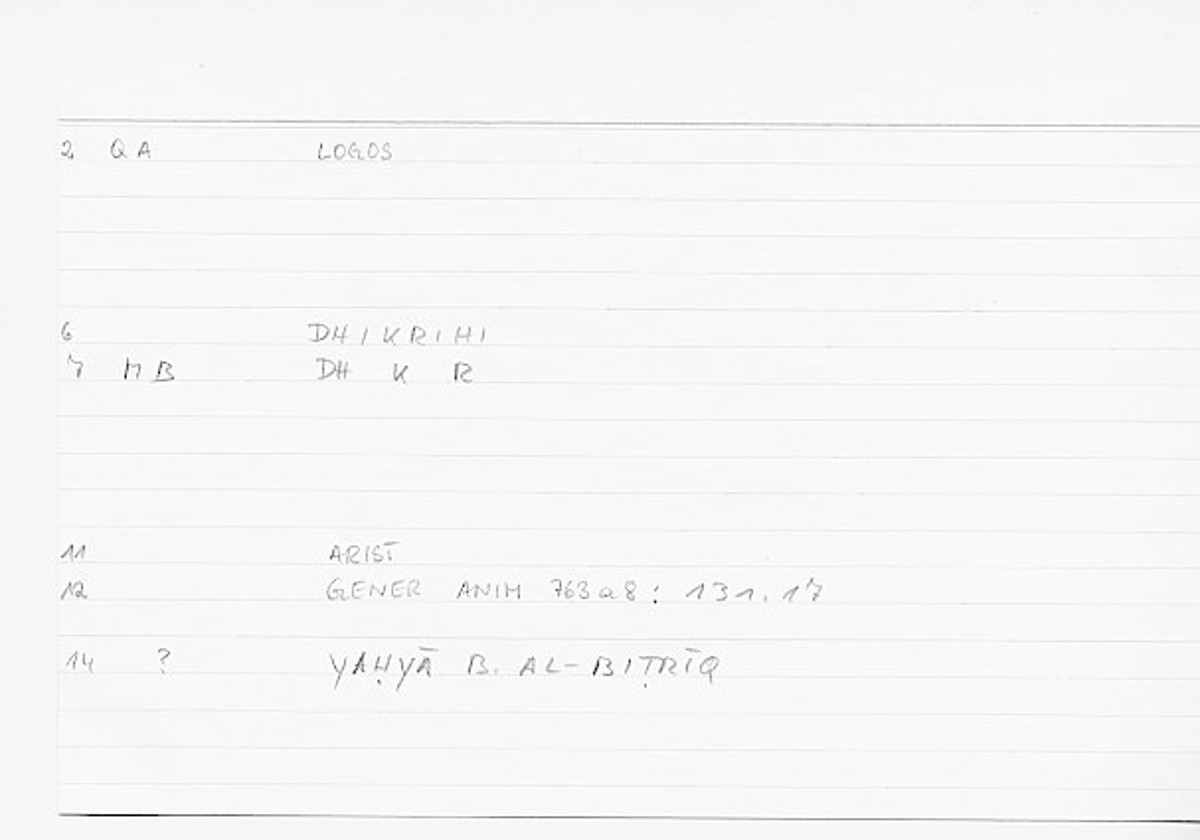 2 QA LOGOS
6 DHIKRIHI
7 MB DH K R
11 ARIST
12 GENER ANIM 763a8: 131.17
14 ? YAḤYĀ B. AL-BIṬRĪQ